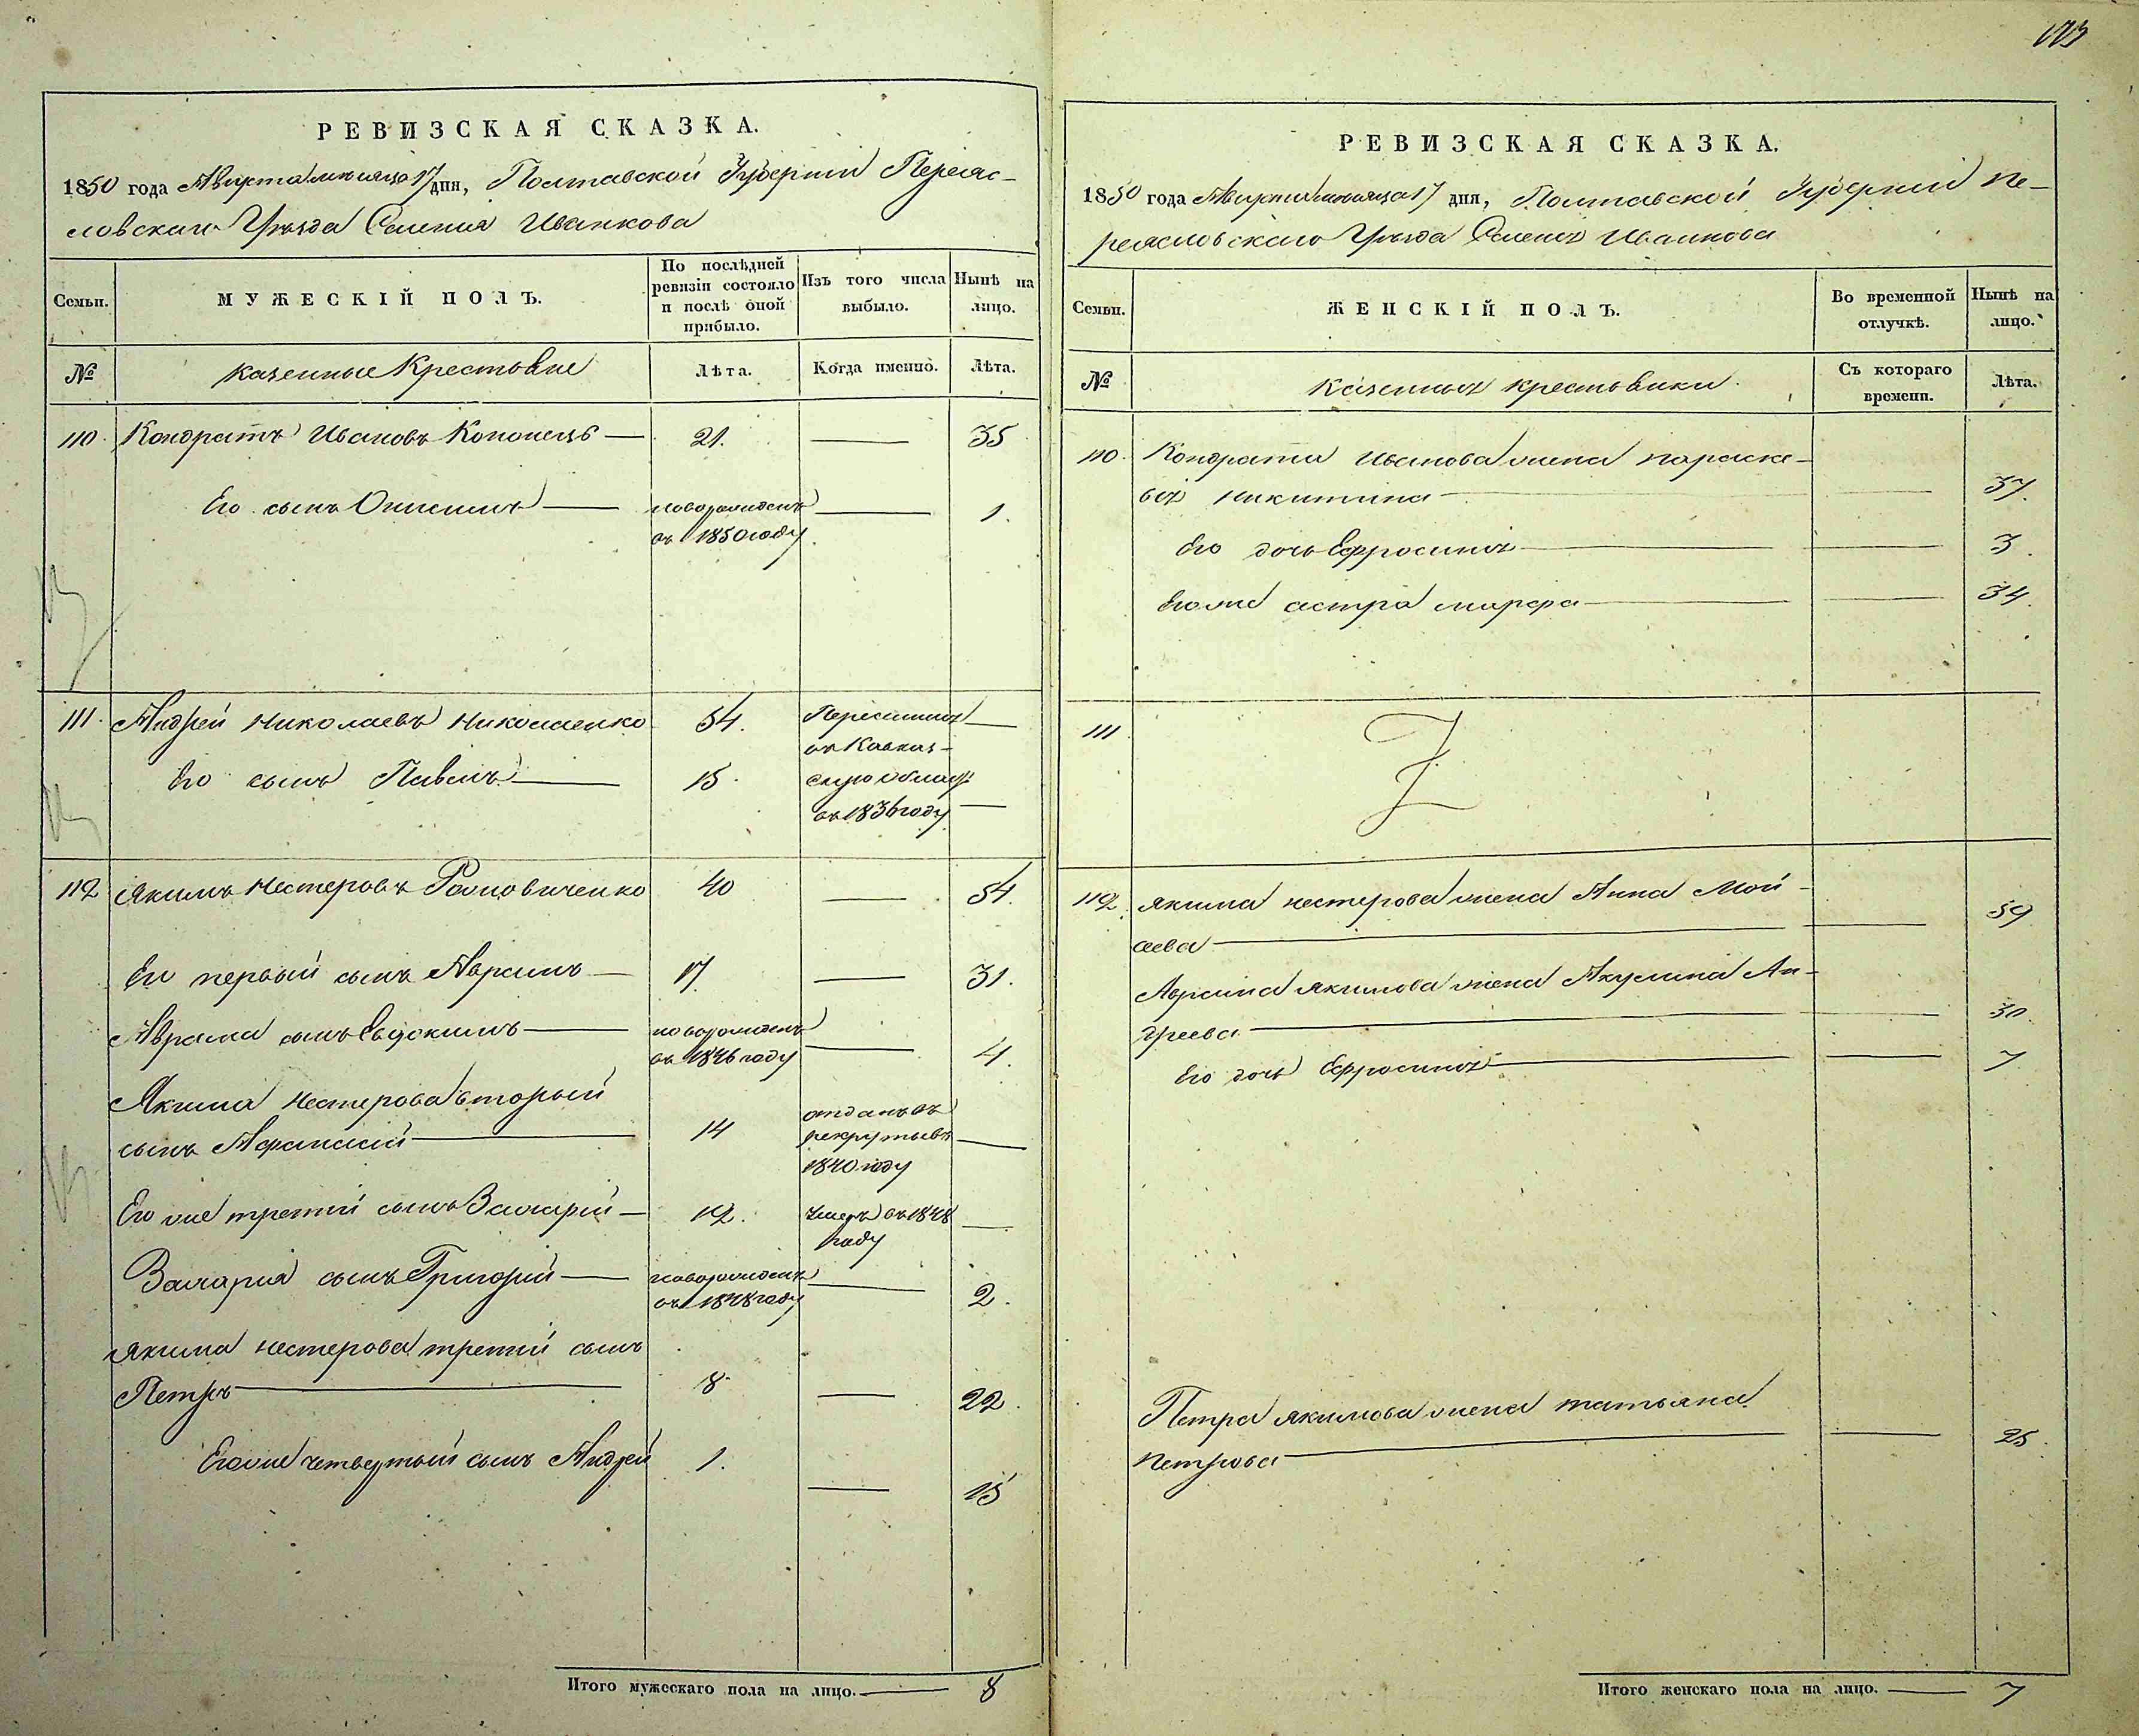 173
РЕВИЗСКАЯ СКАЗКА.
1850 года Августа месяца 17 дня, Полтавской Губерніи Переяс-
ловскаго Уѣзда Селенія Иванкова
Семьи.
МУЖЕСКІЙ ПОЛЪ.
По послѣдней
ревизіи состояло
и послѣ оной
прибыло.
Изъ того числа
выбыло.
Нынѣ на
лицо.
№
казенные Крестьяне
Лѣта.
Когда именно.
Лѣта.
110. Кондратъ Ивановъ Кононецъ 21. 35
Его сынъ Онисимъ новорожденъ 1.
въ 1850 году
111. Андрей Николаевъ Николаенко 54. Переселились
въ Кавказ-
Его сынъ Павелъ 15. скую область
въ 1836 году
112 Якимъ Нестеровъ 40 54.
Его первый сынъ Аврамъ 17. 31.
Аврама сынъ Евдокимъ новорожденъ
въ 1846 году 4.
Якима Нестерова вторый
сынъ Афанасій 14 отданъ въ
рекруты въ
1840 году
Его же третій сынъ Захарій 12. Умеръ въ 1848
году
Захарія сынъ Григорій новорожденъ
въ 1848 году 2.
Якима Нестерова третій сынъ
Петръ 8 22.
Его же четвертый сынъ Андрей 1. 15
Итого мужескаго пола на лицо. 8
РЕВИЗСКАЯ СКАЗКА.
1850 года Августа месяца 17 дня, Полтавской Губерніи Пе-
реясловскаго Уѣзда Селенія Иванкова
Семьи.
ЖЕНСКІЙ ПОЛЪ.
Во временной
отлучкѣ.
Нынѣ на
лицо.
№
Казенныя крестьянки
Съ котораго
времени.
Лѣта.
110. Кондрата Иванова жена параске-
вія Никитина 37.
Его дочь Ефросинія 3.
Его же сестра марфа 34.
111
112. Якима нестерова жена Анна Мой-
сеева 59
Аврама Якимова жена Акулина Ан-
дреева 30.
Его дочь Ефросинія 7
Петра якимова жена татьяна
петрова 25.
Итого женскаго пола на лицо. 7